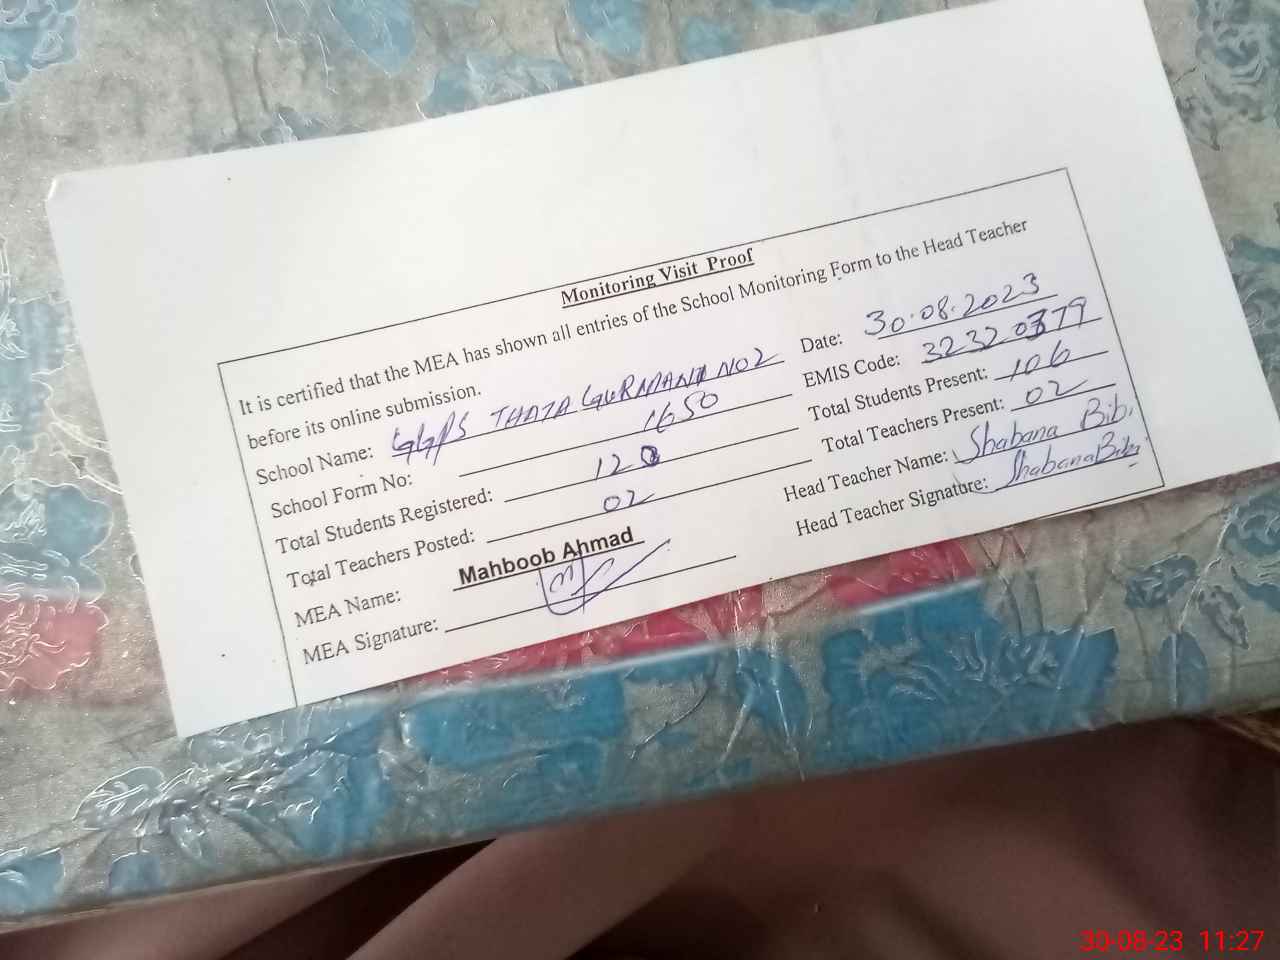 Monitoring Visit Proof
It is certified that the MEA has shown all entries of the School Monitoring Form to the Head Teacher
before its online submission.
Date: 30.08.2023
School Name: GGPS THATA GURMANI NO2
EMIS Code: 32320379
School Form No: 1650
Total Students Present: 106
Total Students Registered: 120
Total Teachers Present: 02
Total Teachers Posted: 02
Head Teacher Name: Shabana Bibi
MEA Name: Mahboob Ahmad
Head Teacher Signature: Shabana Bibi
MEA Signature:
30-08-23 11:27